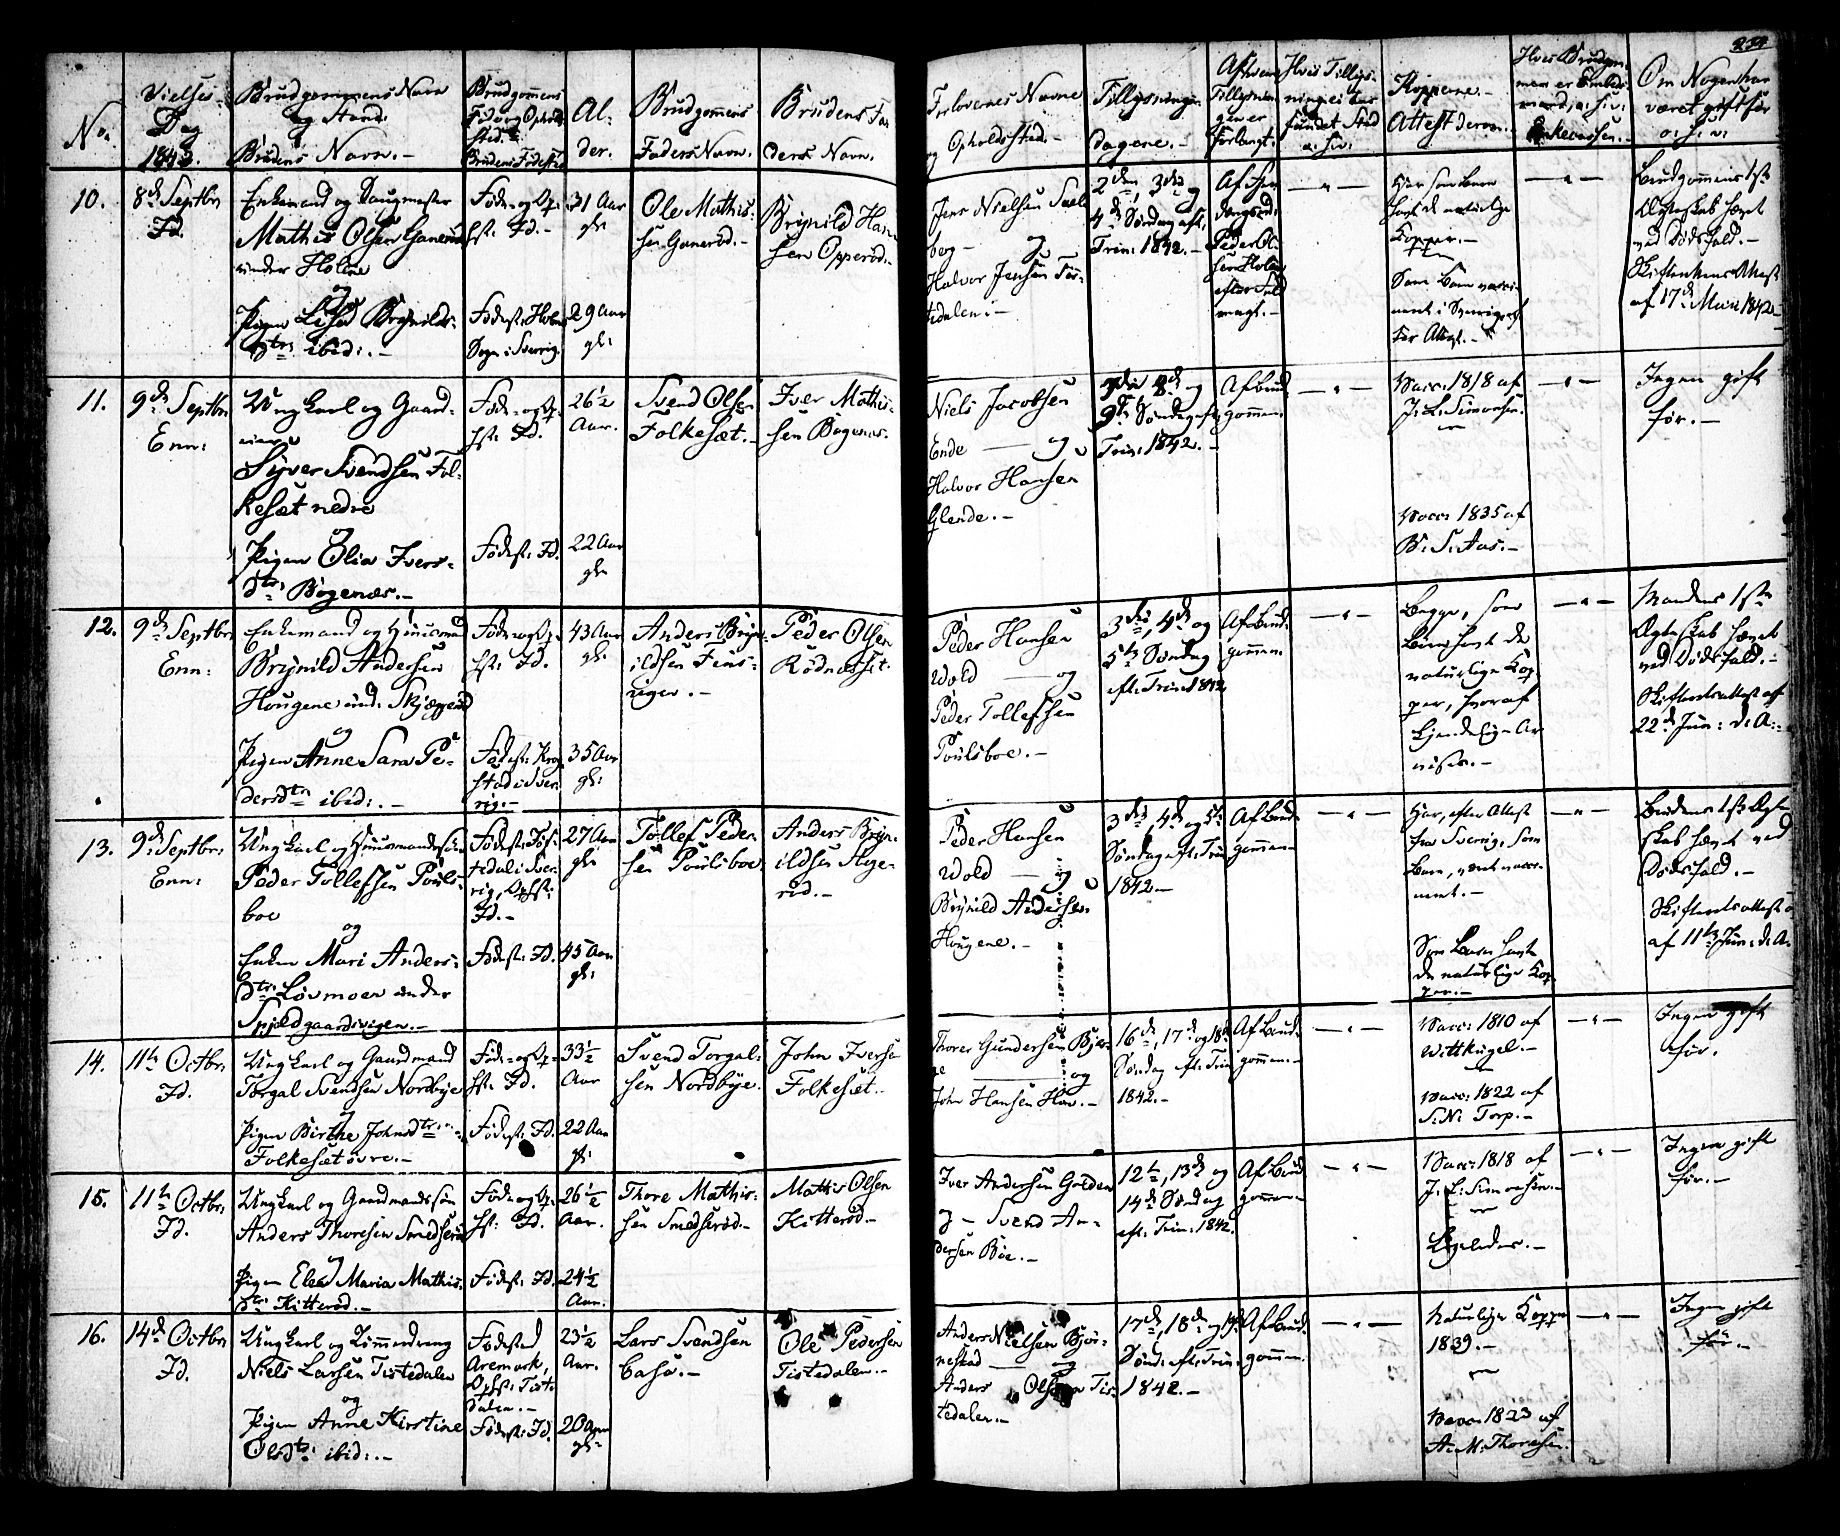 234
No.
Vielses-
Dag
1842.
Brudgommens Navn
og Stand.
Brudens Navn.-
Brudgommens
Føde og Opholds
sted.
Brudens Fødested
Al-
der.
Brudgommens
Faders Navn.
Brudens Fa-
ders Navn.
Forlovernes Navne
og Opholdssted.-
Tillysnings-
dagene.-
Af hvem
Tillysnin-
gen er
forlangt.
Hvis Tillys-
ning ei har
fundet Sted
o: s: v:
Kopperne.-
Attest derom.
Hvis Brudgom-
men er Embeds-
mand, o: s: v:
Enkecassen.-
Om Nogen har
været gift før
o: s: v:
10.
8de Septbr:
Id.
Enkemand og Saugmester
Mathis Olsen Ganerød
under Holme
og
Pigen Lisa Brynilds-
dtr: ibid:.-
Føde- og Op-
hst: Id.-
Fødest: Holms
Sogn i Sverrig.
31 Aar
gl:
29 Aar
gl:
Ole Mathis-
sen Ganerød.-
Brynild Han-
sen Opperød.-
Jens Nielsen Sael-
berg - og
Halvor Jensen Tis-
tedalen:-
2den, 3die og
4de Søndag eft:
Trin: 1842.-
Peder Ol-
sen Holm
efter Fuld
magt.-
— " —
Har som Barn
havt de naturlige
Kopper.-
Som Barn vacci-
neret i Sverrig eft
ter Attest.-
— " —
Brudgommens 1ste
Ægteskab hævet
ved Dødsfald.-
Skifterettens Attest
af 17de Mai 1842.-
11.
9de Septbr:
Enn:
Ungkarl og Gaard-
eier
Syver Svendsen Fol-
kesæt nedre
og
Pigen Olia Ivers-
dtr: Bøgenæs.-
Føde- og Op-
hst: Id.
Fødest: Id.
26½
Aar.
22 Aar
gl:
Svend Olsen
Folkesæt.-
Iver Mathis-
sen Bøgenæs.
Niels Jacobsen
Ende — og
Halvor Hansen
Glende.-
9de Søndag eft:
Trin: 1842.-
Af Brud-
gommen.
— " —
Vacc: 1818 af
J: L: Simonsen.
Vacc: 1835 af
B: S: Aas.-
— " —
Ingen gift
før.-
12.
9de Septbr:
Enn:
Enkemand og Huusmand
Brynild Andersen
Hougene und: Skjeggerød
og
Pigen Anne Sara Pe-
dersdtr ibid:.-
Føde- og Op-
hst: Id.
Fødest: Krog-
stad i Sver-
rig.-
43 Aar
gl:
35 Aar
gl:
Anders Bryn-
ildsen Fens-
rigen.-
Peder Olsen
Rødnæbset.
Peder Hansen
Wold — og
Peder Tollefsen
Poulsboe.-
3die, 4de og
5te Søndag
eft: Trin: 1842
Af Brud-
gommen.
— " —
Begge, som
Børn havt de
naturlige Kop-
per, hvoraf
kjendelige Ar
vises.-
— " —
Mandens 1ste
Ægteskab hævet
ved Dødsfald.-
Skifteretsattest af
22de Jun: d: A:-
13.
9de Septbr:
Enn:
Ungkarl og Huusmandssøn
Peder Tollefsen Pouls-
boe
og
Enken Mari Anders-
dtr: Løvmoen under
Spjeldgaardvigen.-
tedal i Sver-
rig, Ophst:
Id.-
Fødest: Id.
27 Aar
gl:
45 Aar
gl:
Tollef Peder-
sen Poulsboe.
Anders Bryn-
ildsen Huge-
rød.-
Peder Hansen
Wold — og
Brynild Andersen
Hougene.-
3die, 4de og 5te
Søndag eft: Trin
1842.-
Af Brud-
gommen.-
— " —
Har, efter Attest
fra Sverrig, som
Barn, været vacci-
neret.-
Som Barn havt
de naturlige Kop-
per.-
— " —
Brudens 1ste Ægte-
skab hævet ved
Dødsfald.-
Skifteretsattest
af 11te Jun: d: A:
14.
11te Octbr:
Id.
Ungkarl og Gaardmand
Torgal Svendsen Nordbye
og
Pigen Birthe Johnsdtr
Folkesæt øvre.-
Føde- og Op-
hst: Id.
Fødest: Id.
33½
Aar
22 Aar
gl:
Svend Torgal-
sen Nordbye.
John Iversen
Folkesæt.-
Thorer Gundersen Bjer-
ge — og
John Hansen Hov.-
16de, 17de og 18de
Søndag eft: Trin
1842.-
Af Brud-
gommen.-
— " —
Vacc: 1810 af
Wittkugel.-
Vacc: 1822 af
S: N: Torp.-
— " —
Ingen gift
før.
15.
11te Octbr:
Id.
Ungkarl og Gaardmandssøn
Anders Thoresen Smedserød
og
Pigen Elea Maria Mathis-
dtr: Kitterød.-
Føde- og Op-
hst: Id.
Fødest: Id.
26½
Aar.
24½
Aar.
Thore Mathis-
sen Smedserød.-
Mathis Olsen
Kitterød.-
Iver Andersen Golden
og - Svend An-
dersen Bøe.-
12te, 13de og
14de Søndag
eft: Trin: 1842.
Af Brud-
gommen.-
— " —
Vacc: 1818 af
J: L: Simonsen.-
Ligeledes.-
— " —
Ingen gift
før.-
16.
14de Octbr:
Id.
Ungkarl og Tømmerdreng
Niels Larsen Tistedalen
og
Pigen Anne Kirstine
Olsdtr: ibid:.-
Fødested
Aremark,
Ophst: Tiste-
dalen.-
Fødest: Id.
23½
Aar.
20 Aar
gl:
Lars Svendsen
Casa.-
Ole Pedersen
Tistedalen.-
Anders Nielsen Bjør-
nestad — og
Anders Olsen Tis-
tedalen.-
17de, 18de og 19de
Sønd: eft: Trin:
1842.-
Af Brud-
gommen.
— " —
Naturlige Kopper
1839.-
Vacc: 1823 af
A: M: Thoresen.
— " —
Ingen gift
før.-